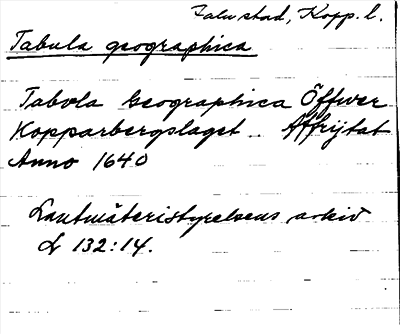 Falu stad, Kopp. l.
Tabula geographica
Tabvla Geographica Öffwer
Kopparbergslaget .. Affrijtat
Anno 1640
Lantmäteristyrelsens arkiv
L 132:14.